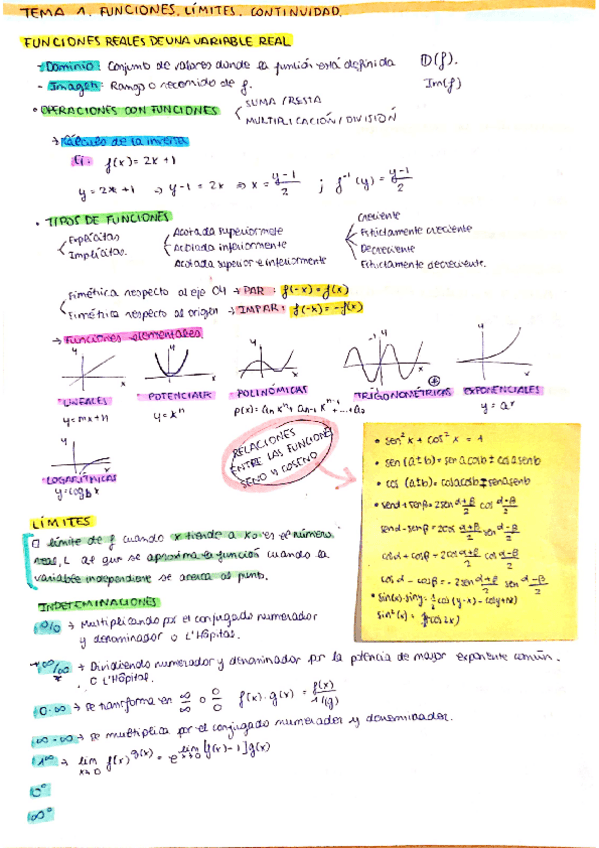 TEMA 1. FUNCIONES. LÍMITES. CONTINUIDAD.
FUNCIONES REALES DE UNA VARIABLE REAL
- Dominio: Conjunto de valores donde la función está definida D(f).
- Imagen: Rango o recorrido de f. Im(f)
• OPERACIONES CON FUNCIONES
SUMA / RESTA
MULTIPLICACIÓN / DIVISIÓN
→ Cálculo de la inversa
Ej. f(x) = 2x + 1
y = 2x + 1 → y - 1 = 2x ⇒ x = (y-1)/2 ; f⁻¹(y) = (y-1)/2
• TIPOS DE FUNCIONES
Explícitas
Implícitas.
Acotada superiormente
Acotada inferiormente
Acotada superior e inferiormente
Creciente
Estrictamente creciente
Decreciente
Estrictamente decreciente.
Simétrica respecto al eje OY → PAR: f(-x) = f(x)
Simétrica respecto al origen → IMPAR: f(-x) = -f(x)
→ Funciones elementales
LINEALES
y = mx + n
POTENCIALES
y = xⁿ
POLINÓMICAS
P(x) = aₙxⁿ + aₙ₋₁xⁿ⁻¹ + ... + a₀
TRIGONOMÉTRICAS
EXPONENCIALES
y = aˣ
LOGARÍTMICAS
y = log_b x
RELACIONES
ENTRE LAS FUNCIONES
SENO Y COSENO
• sen²x + cos²x = 1
• sen(a±b) = sen a cos b ± cos a sen b
• cos(a±b) =
• sen α + sen β = 2 sen (α+β)/2 cos (α-β)/2
sen α - sen β = 2 cos (α+β)/2 sen (α-β)/2
cos α + cos β = 2 cos (α+β)/2 cos (α-β)/2
cos α - cos β = -2 sen (α+β)/2 sen (α-β)/2
• sin(x)·sin y =
sin²(x) =
LÍMITES
El límite de f cuando x tiende a x₀ es el número
real, L al que se aproxima la función cuando la
variable independiente se acerca al punto.
INDETERMINACIONES
0/0 → Multiplicando por el conjugado numerador
y denominador o L'Hôpital.
∞/∞ → Dividiendo numerador y denominador por la potencia de mayor exponente común.
O L'Hôpital.
0·∞ → se transforma en ∞/∞ o 0/0 f(x)·g(x) = f(x)/(1/g)
∞-∞ → se multiplica por el conjugado numerador y denominador.
1^∞ → lim x→0 f(x)^g(x) = e^lim x→0 [f(x)-1]g(x)
0⁰
∞⁰